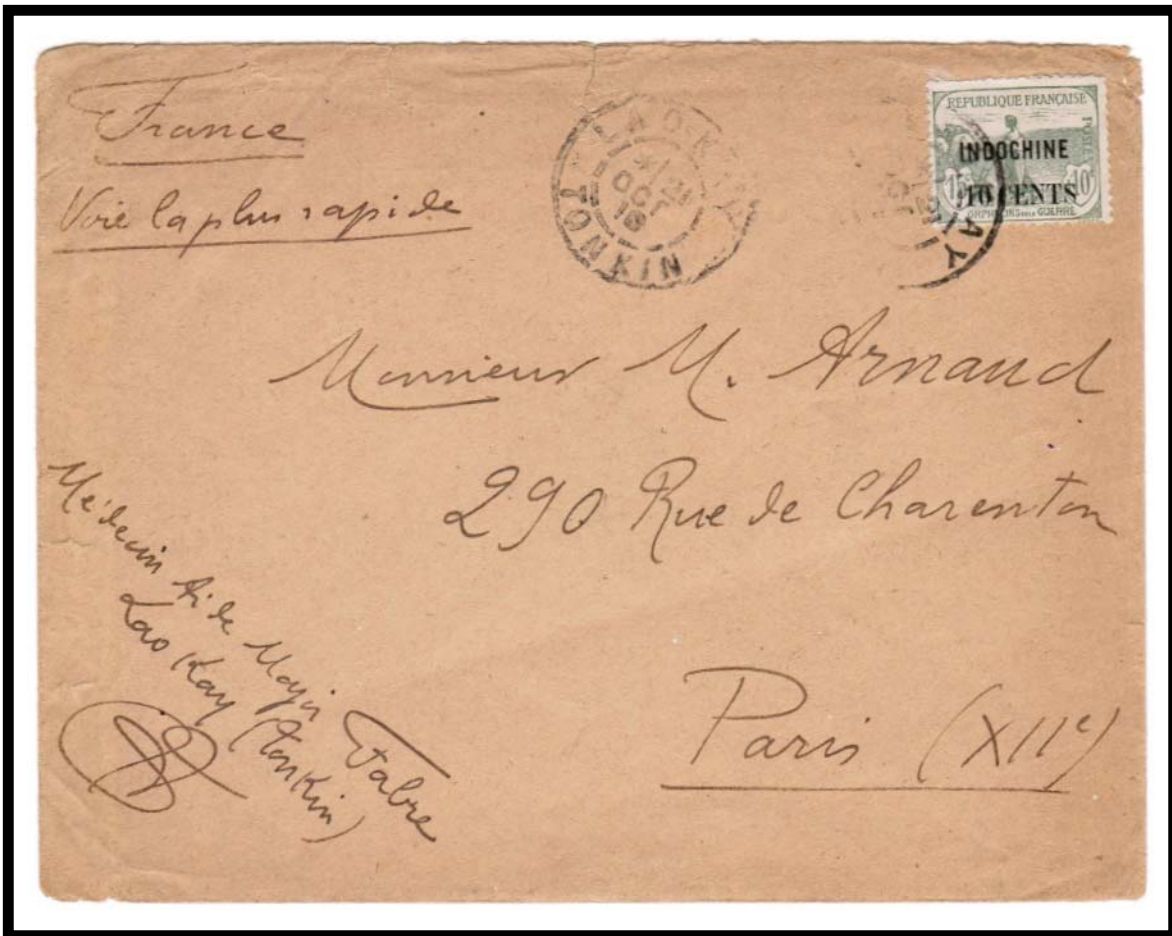 France
Voie la plus rapide
LAO-KAY
21
OCT
19
TONKIN
REPUBLIQUE FRANÇAISE
POSTES
INDOCHINE
15c 10 CENTS 10c
ORPHELINS DE LA GUERRE
Monsieur M. Arnaud
290 Rue de Charenton
Paris (XIIe)
Médecin Aide Major Fabre
Lao Kay (Tonkin)